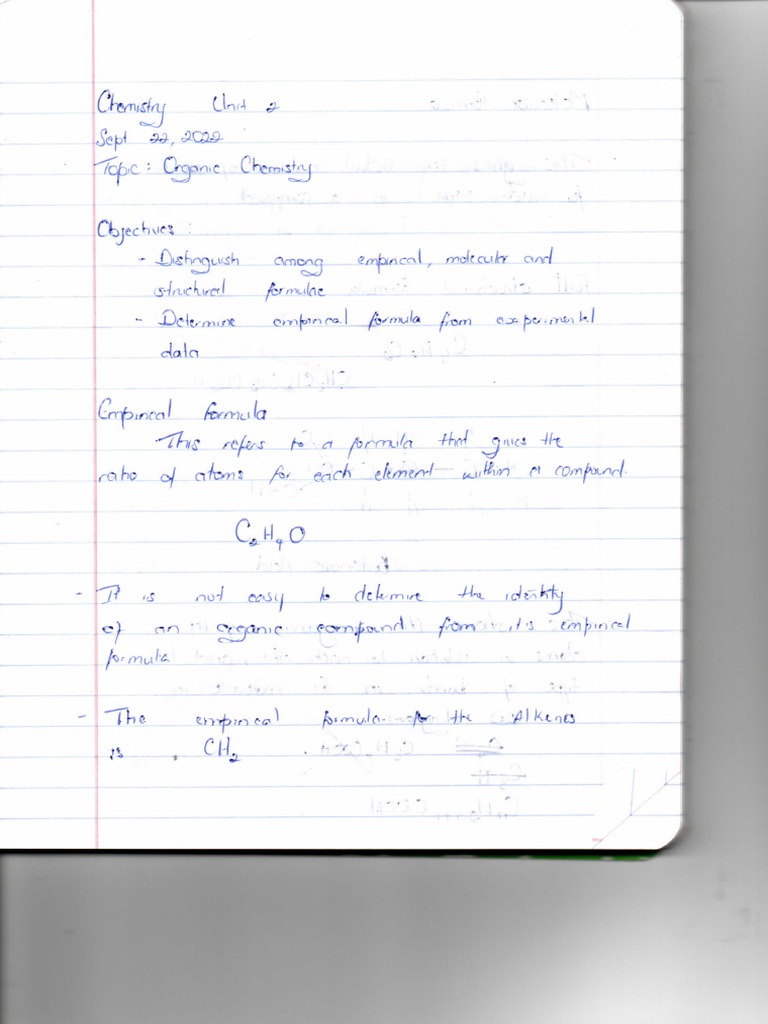 Chemistry Unit 2
Sept 22, 2022
Topic: Organic Chemistry
Objectives:
- Distinguish among empirical, molecular and
structural formulae
- Determine empirical formula from experimental
data
Empirical Formula
This refers to a formula that gives the
ratio of atoms for each element within a compound.
C₂H₄O
- It is not easy to determine the identity
of an organic compound from it's empirical
formula
- The empirical formula for the Alkenes
is CH₂